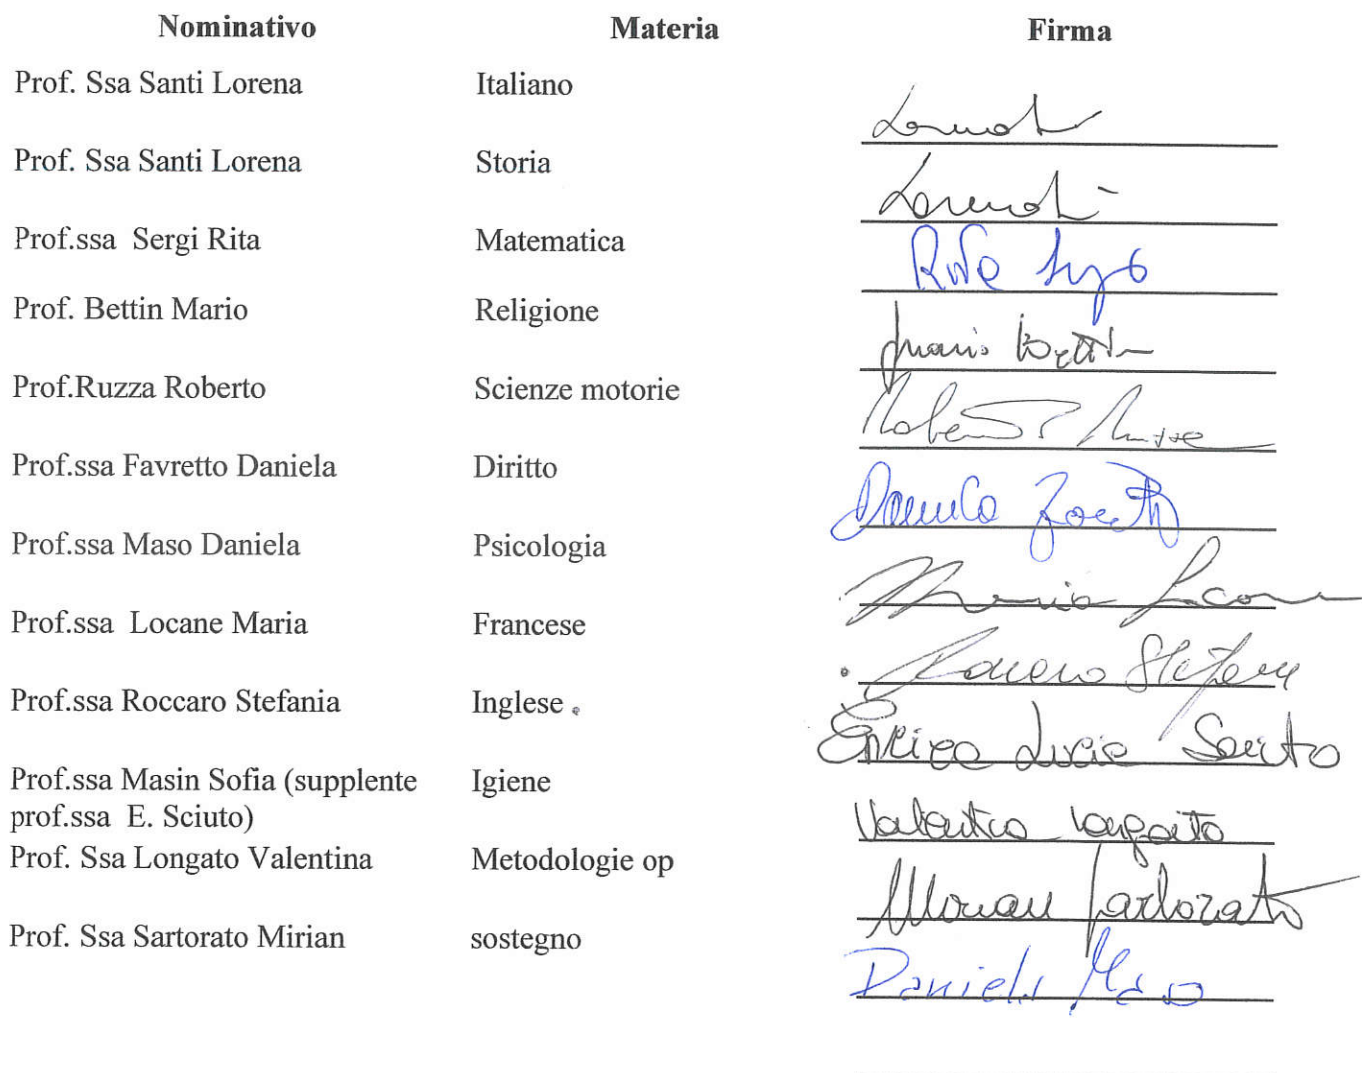 Nominativo Materia Firma
Prof. Ssa Santi Lorena Italiano
Prof. Ssa Santi Lorena Storia
Prof.ssa Sergi Rita Matematica
Prof. Bettin Mario Religione
Mario Bettin
Prof.Ruzza Roberto Scienze motorie
Roberto Ruzza
Prof.ssa Favretto Daniela Diritto
Daniela
Prof.ssa Maso Daniela Psicologia
Maria Locane
Prof.ssa Locane Maria Francese
Roccaro Stefania
Prof.ssa Roccaro Stefania Inglese
Enrica Lucia Sciuto
Prof.ssa Masin Sofia (supplente Igiene
prof.ssa E. Sciuto)
Valentina Longato
Prof. Ssa Longato Valentina Metodologie op
Sartorato
Prof. Ssa Sartorato Mirian sostegno
Daniela Maso